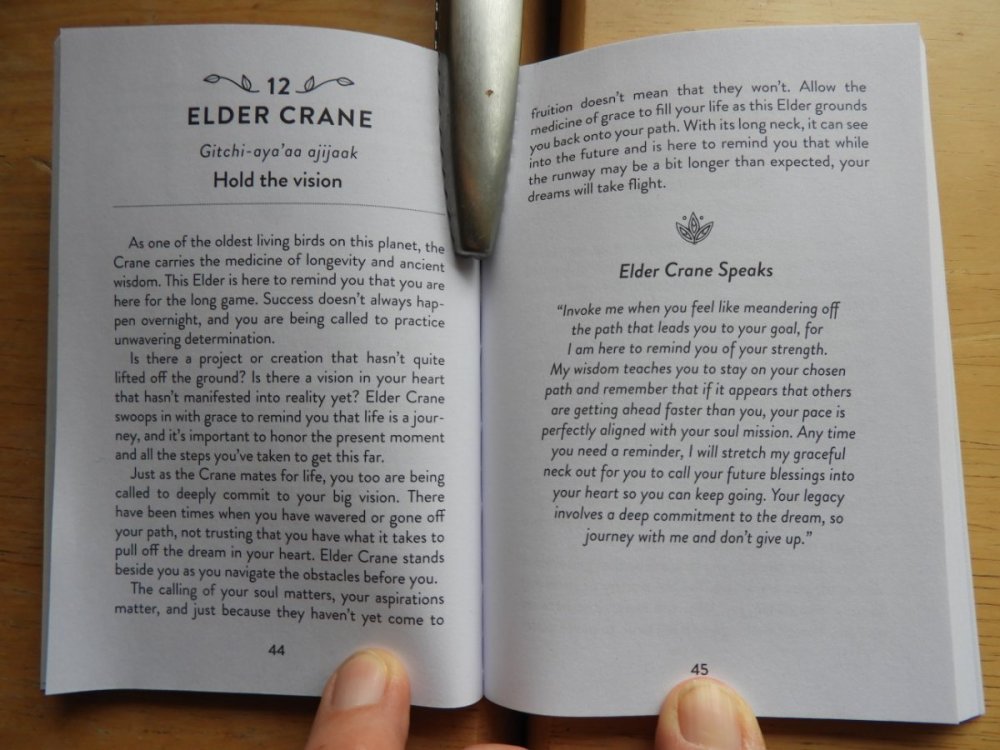 12
ELDER CRANE
Gitchi-aya'aa ajijaak
Hold the vision
As one of the oldest living birds on this planet, the
Crane carries the medicine of longevity and ancient
wisdom. This Elder is here to remind you that you are
here for the long game. Success doesn't always hap-
pen overnight, and you are being called to practice
unwavering determination.
Is there a project or creation that hasn't quite
lifted off the ground? Is there a vision in your heart
that hasn't manifested into reality yet? Elder Crane
swoops in with grace to remind you that life is a jour-
ney, and it's important to honor the present moment
and all the steps you've taken to get this far.
Just as the Crane mates for life, you too are being
called to deeply commit to your big vision. There
have been times when you have wavered or gone off
your path, not trusting that you have what it takes to
pull off the dream in your heart. Elder Crane stands
beside you as you navigate the obstacles before you.
The calling of your soul matters, your aspirations
matter, and just because they haven't yet come to
44
fruition doesn't mean that they won't. Allow the
medicine of grace to fill your life as this Elder grounds
you back onto your path. With its long neck, it can see
into the future and is here to remind you that while
the runway may be a bit longer than expected, your
dreams will take flight.
Elder Crane Speaks
"Invoke me when you feel like meandering off
the path that leads you to your goal, for
I am here to remind you of your strength.
My wisdom teaches you to stay on your chosen
path and remember that if it appears that others
are getting ahead faster than you, your pace is
perfectly aligned with your soul mission. Any time
you need a reminder, I will stretch my graceful
neck out for you to call your future blessings into
your heart so you can keep going. Your legacy
involves a deep commitment to the dream, so
journey with me and don't give up."
45